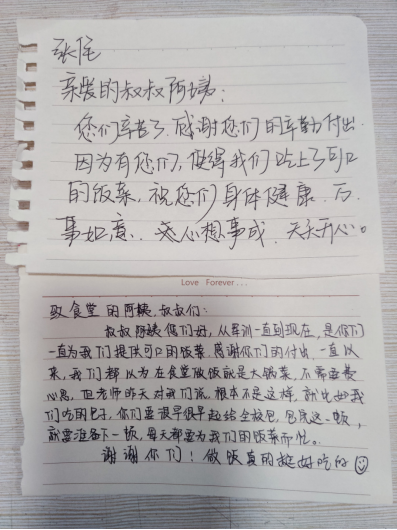 张佳
亲爱的叔叔阿姨：
您们辛苦了.感谢您们的辛勤付出.
因为有您们，使得我们吃上了可口
的饭菜，祝您们身体健康、万
事如意、心想事成、天天开心。
Love Forever...
致食堂的阿姨、叔叔们：
叔叔阿姨你们好，从军训一直到现在，是你们
一直为我们提供可口的饭菜.感谢你们的付出，一直以
来，我们都以为在食堂做饭就是大锅菜，不需要费
心思，但老师昨天对我们说，根本不是这样，就比如我
们吃的包子，你们要很早很早起给全校包，包完这一顿，
就要准备下一顿，每天都要为我们的饭菜而忙。
谢谢你们！做饭真的挺好吃的